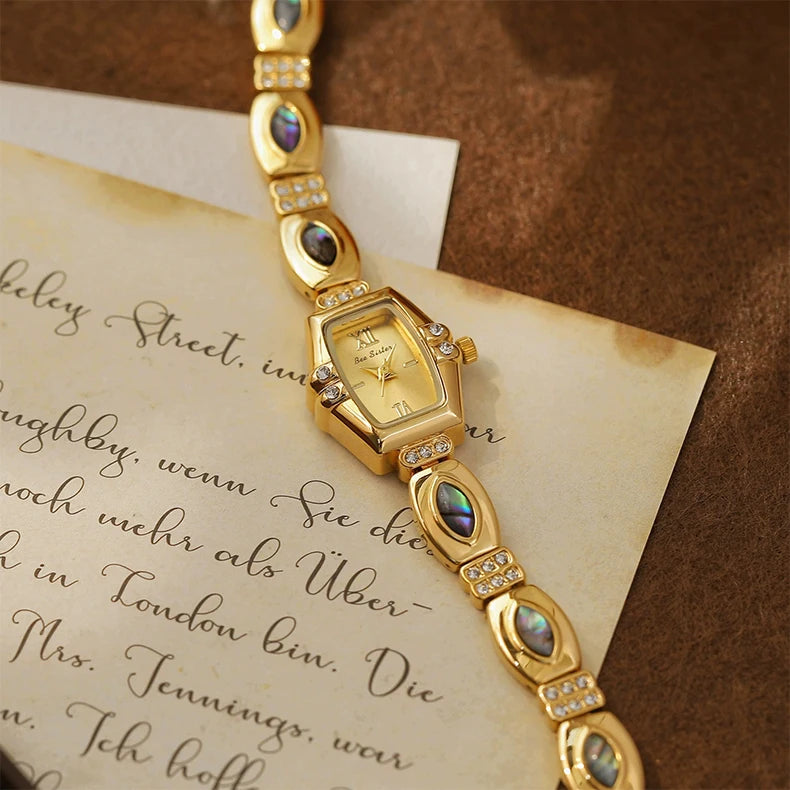 XII
Bee Sister
VI
keley Street, im
oughby, wenn Sie die
noch mehr als Über-
h in London bin. Die
Mrs. Jennings, war
n. Ich hoff